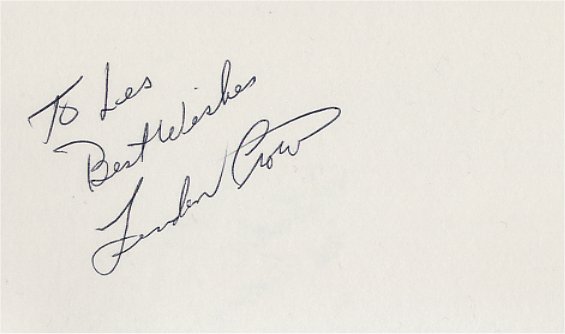 To Les
Best Wishes
Lindon Crow